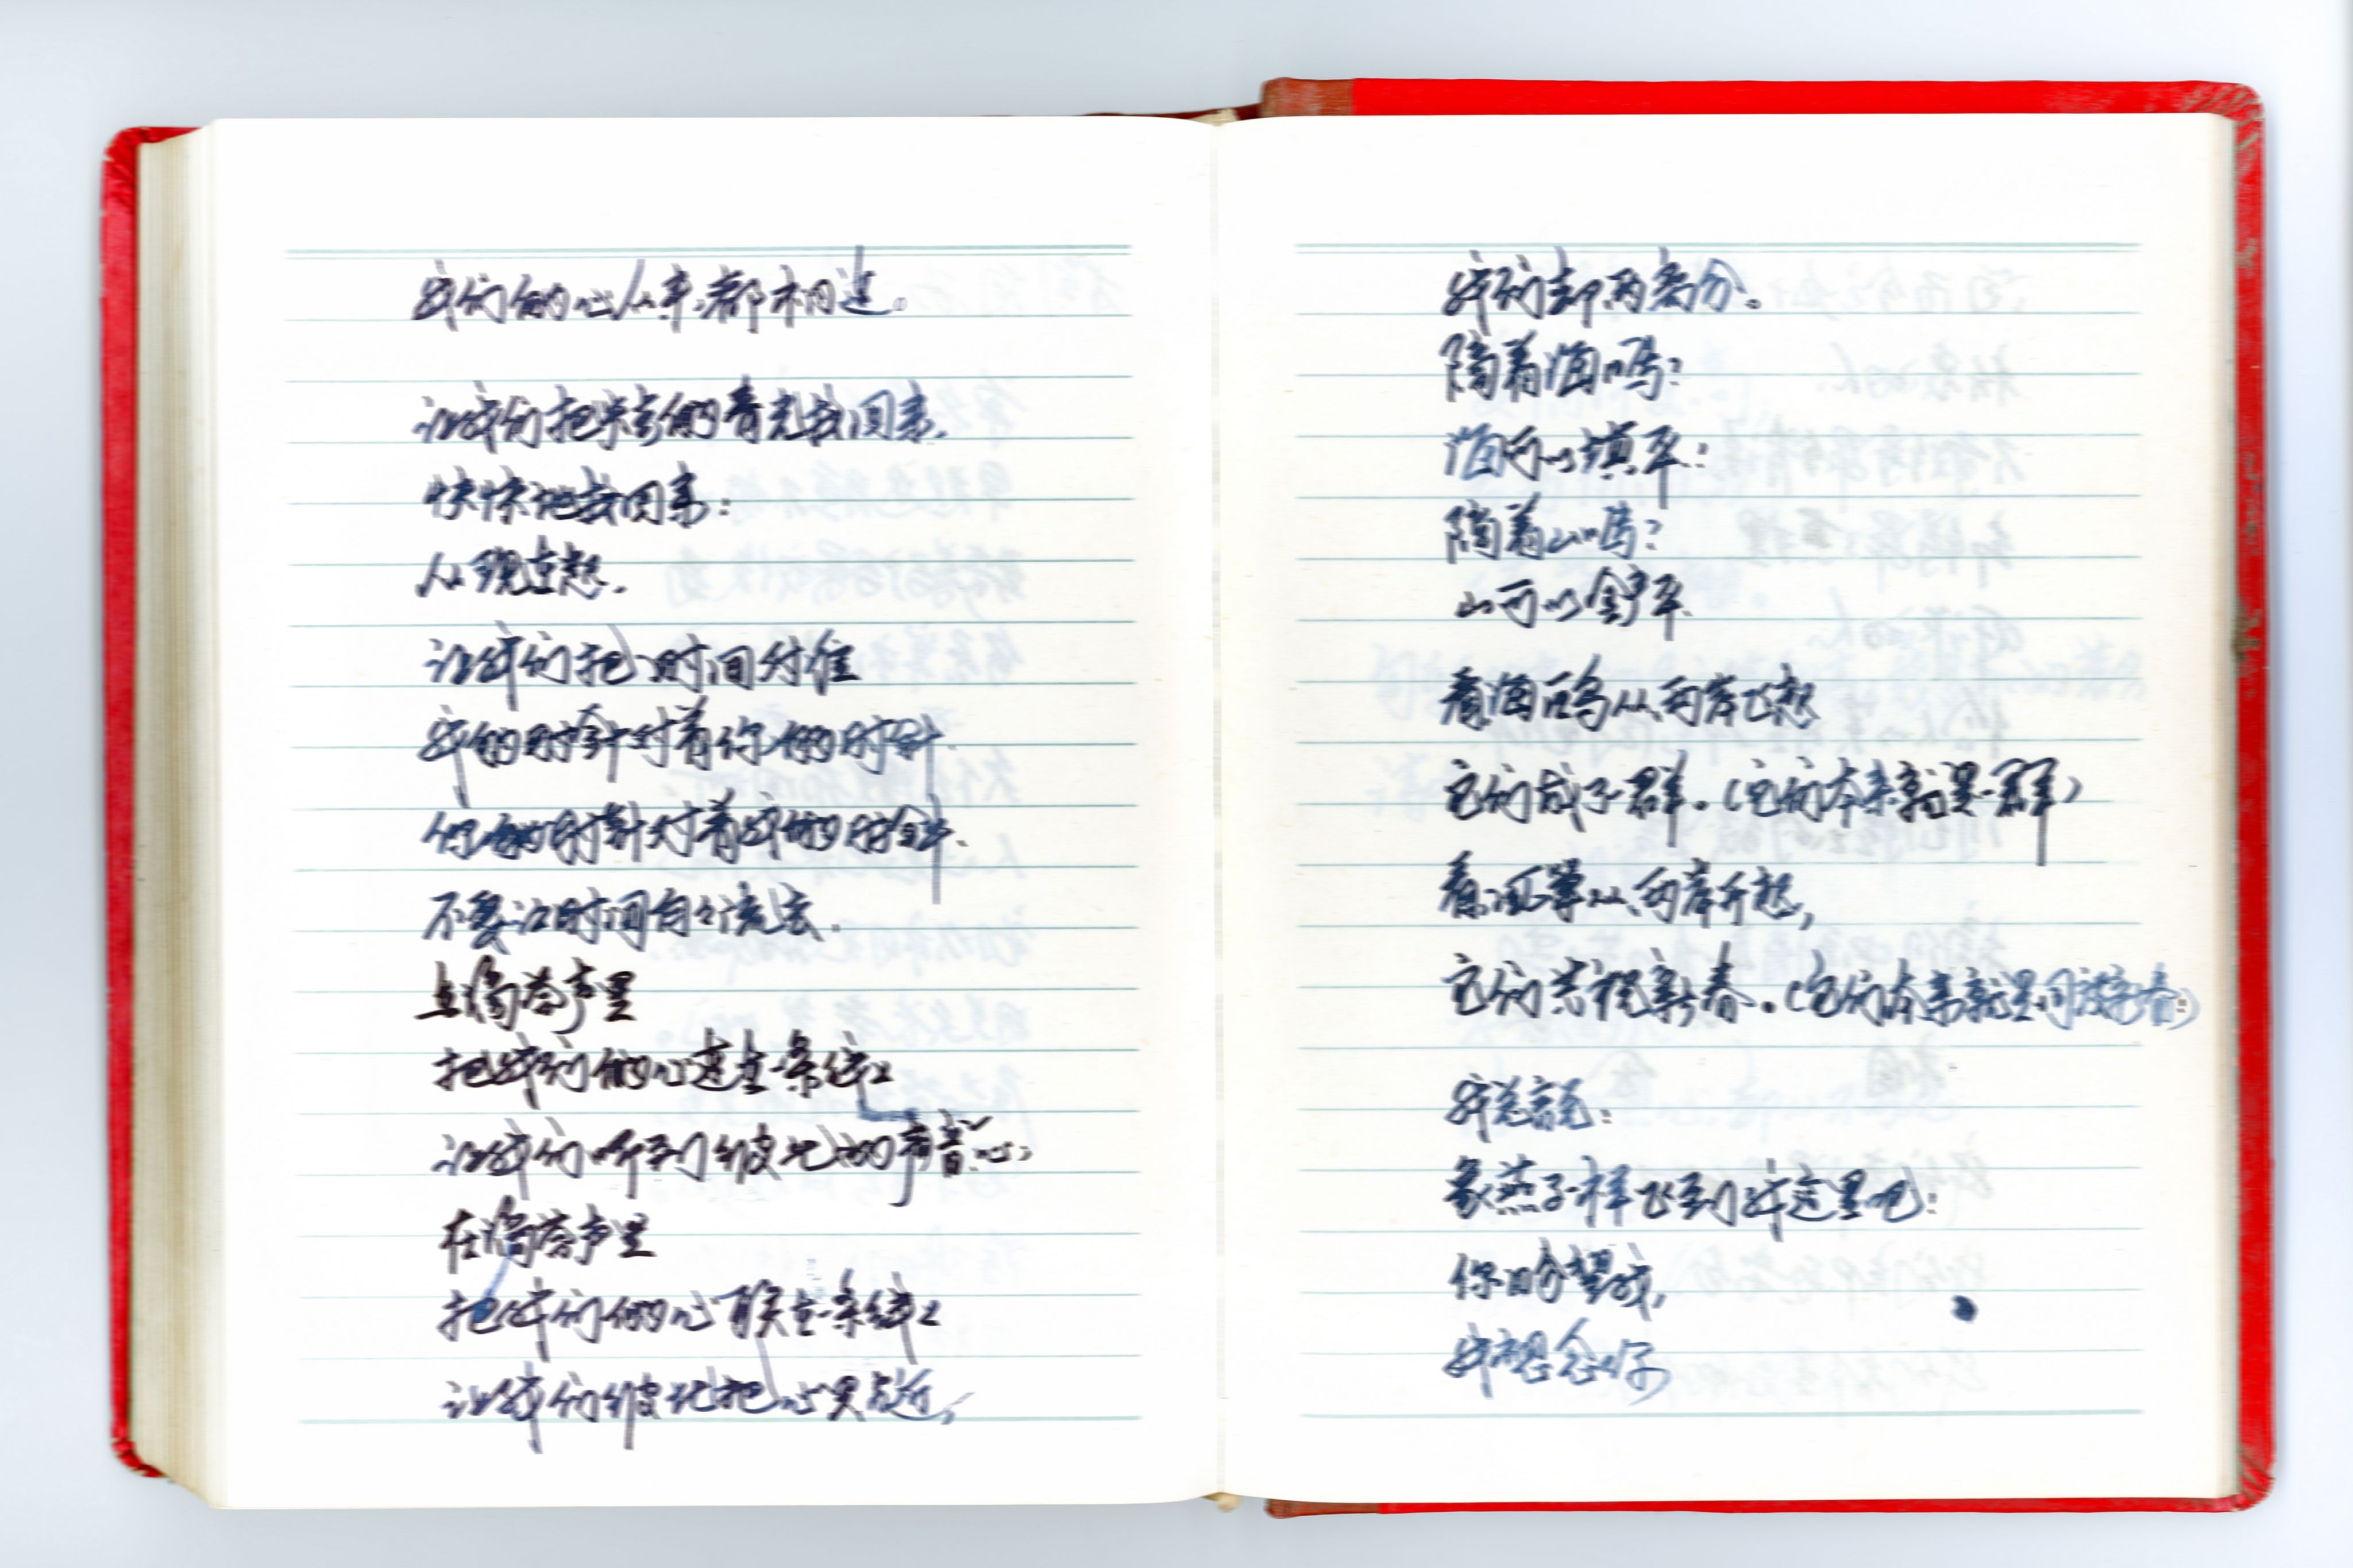 我们的心从来都相连。
让我们把失去的青光找回来,
快快地找回来:
从现在起.
让我们把时间对准
我的时针对着你的时针.
你的时针对着我的时针.
不要让时间白白流去.
在滴答声里
把我们的心连在一条线上
让我们听到彼此的声音心;
在滴答声里
把我们的心联在一条线上
让我们彼此把心贴近,
我们却两离分。
隔着海吗?
海可以填平!
隔着山吗?
山可以铲平.
看海鸥从两岸飞起
它们成了群。(它们本来就是一群)
看海军从两岸升起,
它们共祝新春。(它们本来就是同祝新春)
我总说:
象燕子一样飞到我这里吧:
你盼望我,
我想念你